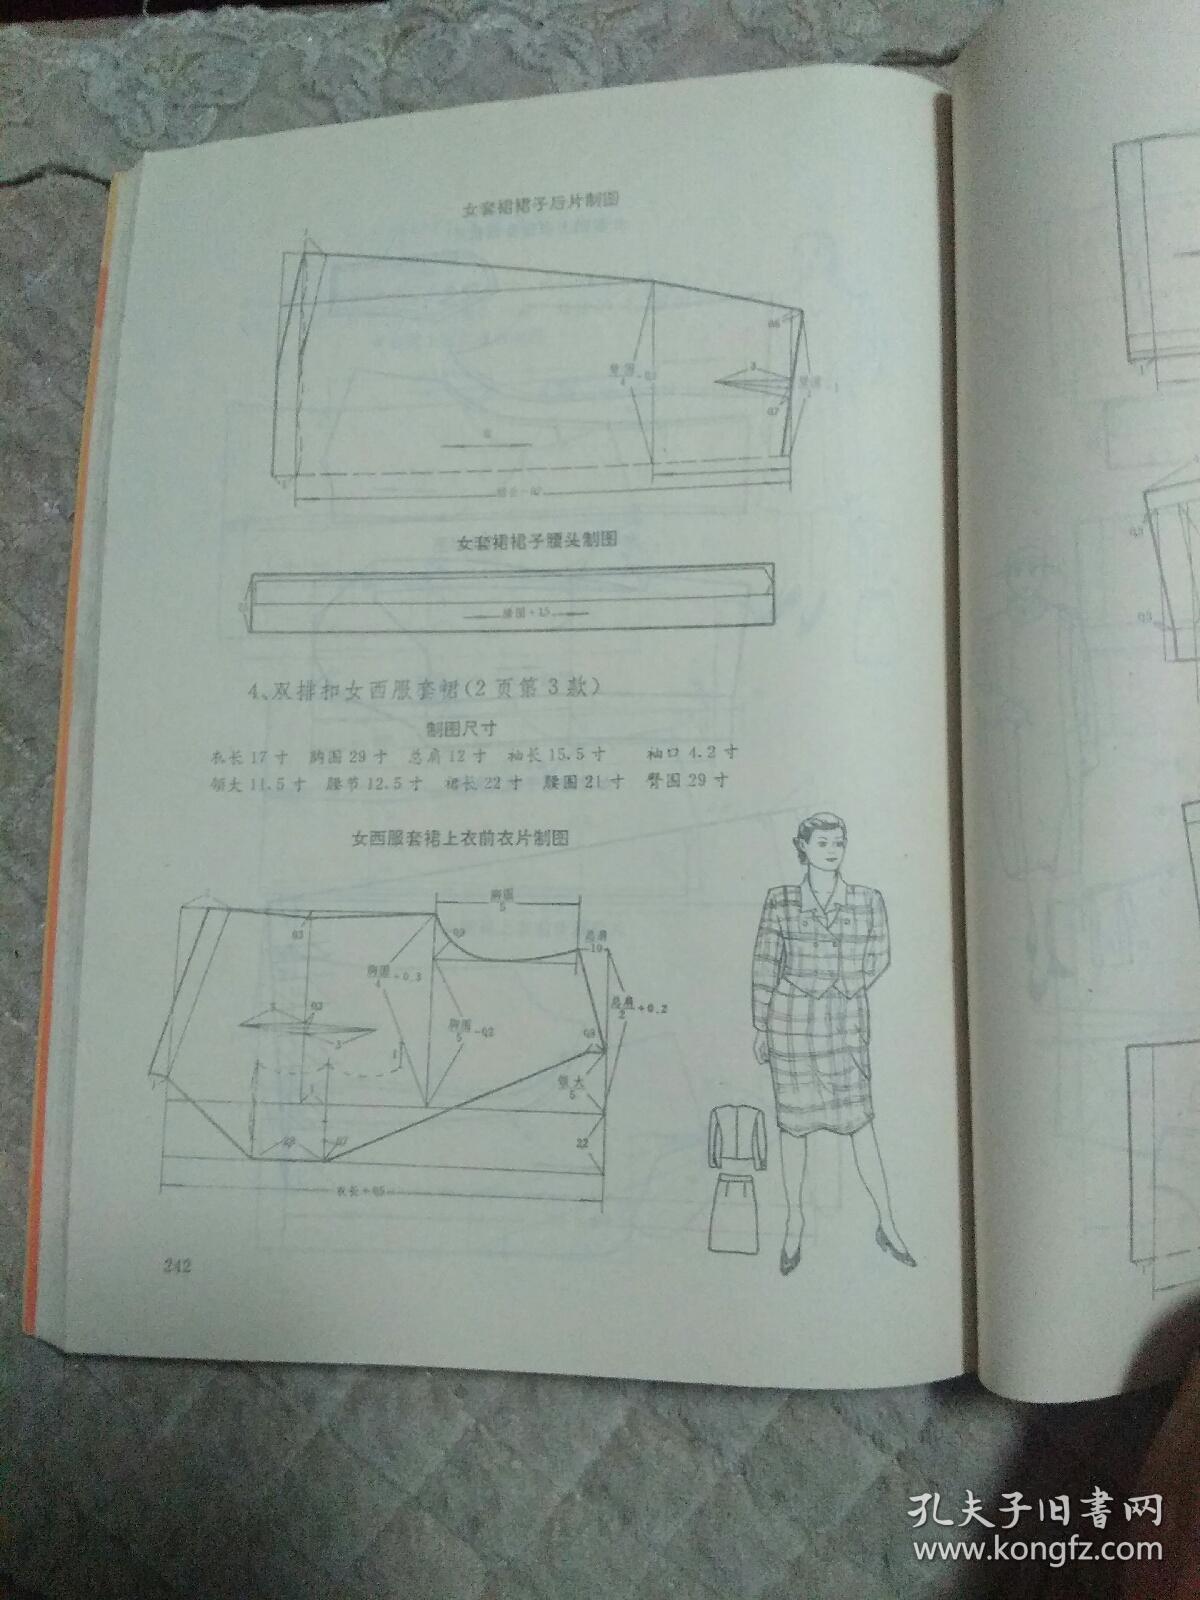 女套裙裙子后片制图
3
女套裙裙子腰头制图
腰围+15
4、双排扣女西服套裙(2页第3款)
制图尺寸
衣长17寸 胸围29寸 总肩12寸 袖长15.5寸 袖口4.2寸
领大11.5寸 腰节12.5寸 裙长22寸 腰围21寸 臀围29寸
女西服套裙上衣前衣片制图
胸围
5
总肩
10
胸围
4
+0.3
总肩
2
+0.2
胸围
5
领大
5
22
242
孔夫子旧書网
www.kongfz.com